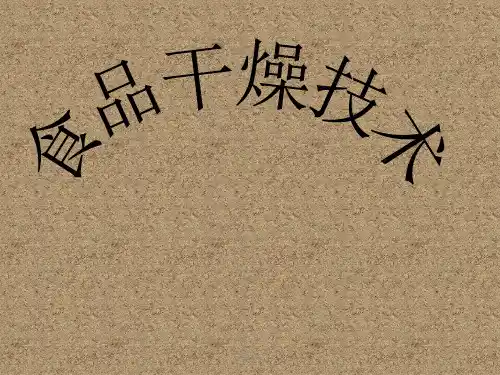 食品干燥技术